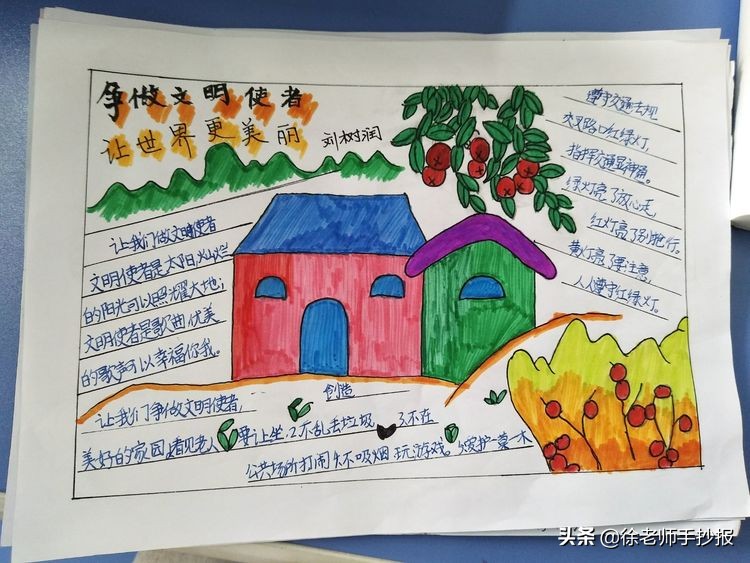 争做文明使者
让世界更美丽
刘树润
让我们做文明使者
文明使者是太阳,灿烂
的阳光可以照耀大地;
文明使者是歌曲,优美
的歌声可以幸福你我。
遵守交通法规
交叉路口红绿灯,
指挥交通显神通。
绿灯亮了放心走,
红灯亮了别抢行。
黄灯亮了要注意,
人人遵守红绿灯。
让我们争做文明使者,
创造
美好的家园 看见老人 要让坐.2不乱丢垃圾 3.不在
公共场所打闹 不吸烟 玩游戏。 爱护一草一木
头条 @徐老师手抄报